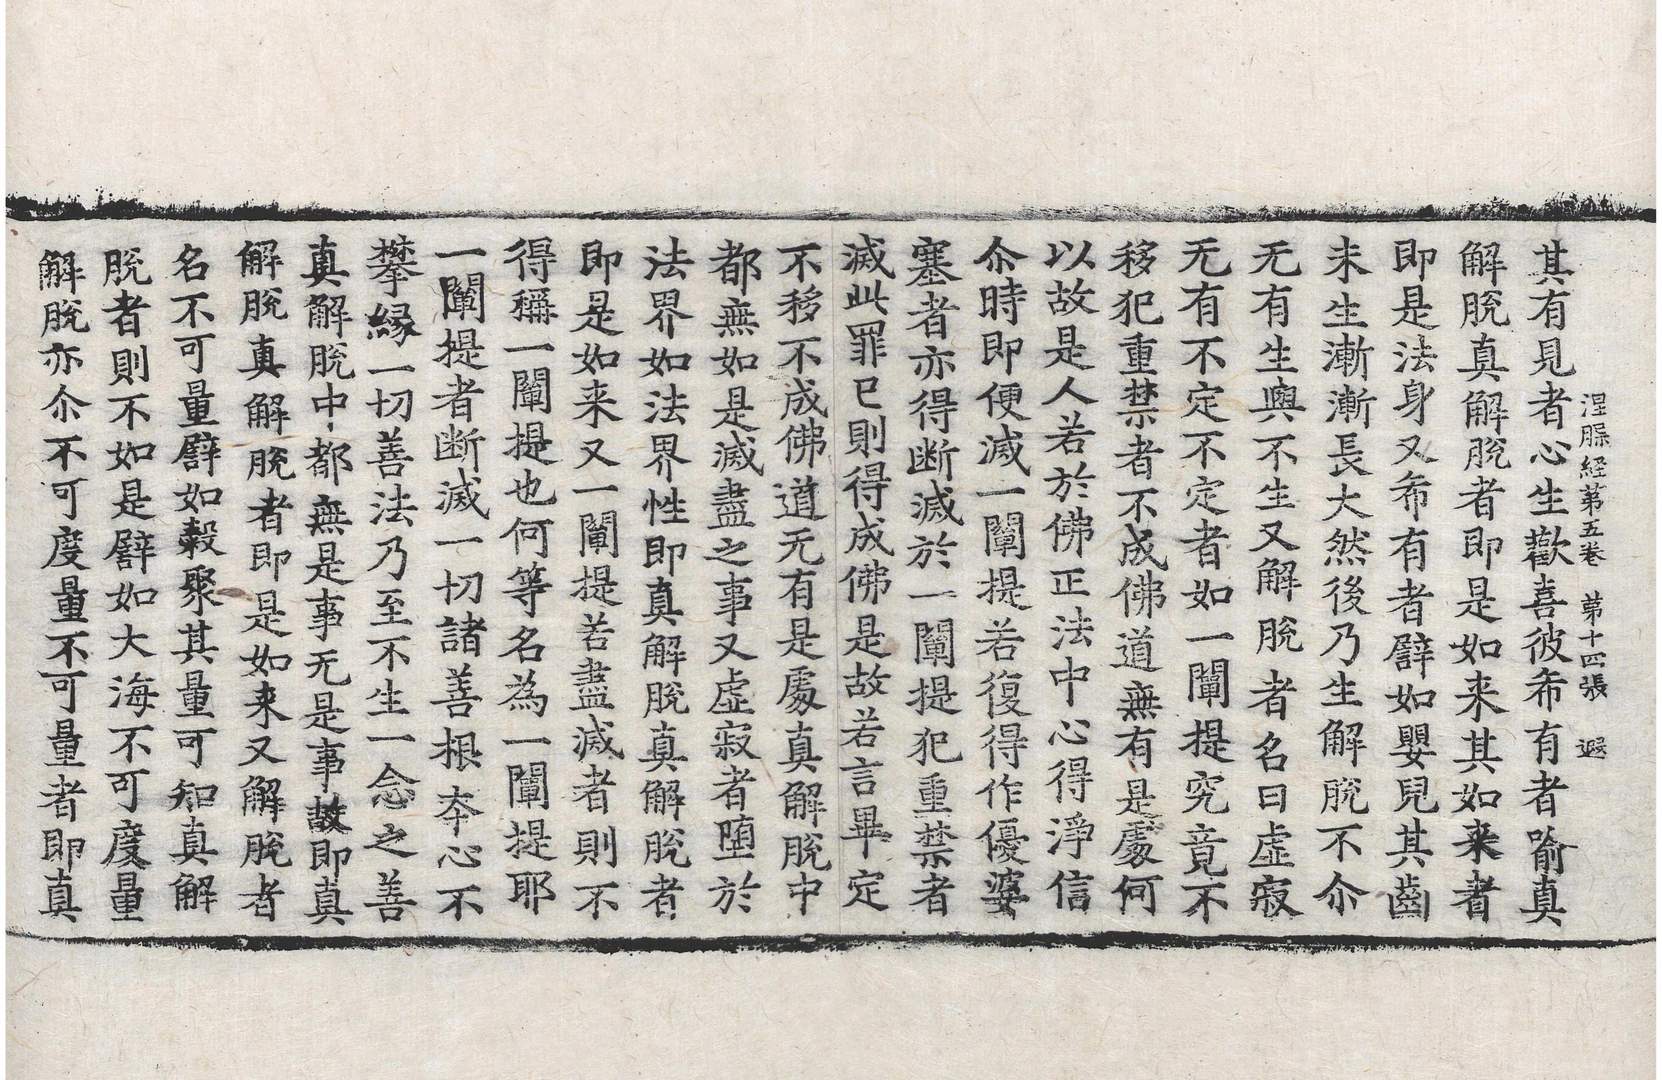 涅槃経第五卷 第十四張 遐
其有見者心生歡喜彼希有者喻真
解脫真解脫者即是如来其如来者
即是法身又希有者譬如嬰兒其齒
未生漸漸長大然後乃生解脫不尒
无有生與不生又解脫者名曰虛寂
无有不定不定者如一闡提究竟不
移犯重禁者不成佛道無有是處何
以故是人若於佛正法中心得淨信
尒時即便滅一闡提若復得作優婆
塞者亦得断滅於一闡提犯重禁者
滅此罪已則得成佛是故若言畢定
不移不成佛道无有是處真解脫中
都無如是滅盡之事又虛寂者堕於
法界如法界性即真解脫真解脫者
即是如来又一闡提若盡滅者則不
得稱一闡提也何等名為一闡提耶
一闡提者断滅一切諸善根夲心不
攀縁一切善法乃至不生一念之善
真解脫中都無是事无是事故即真
解脫真解脫者即是如来又解脫者
名不可量譬如穀聚其量可知真解
脫者則不如是譬如大海不可度量
解脫亦尒不可度量不可量者即真